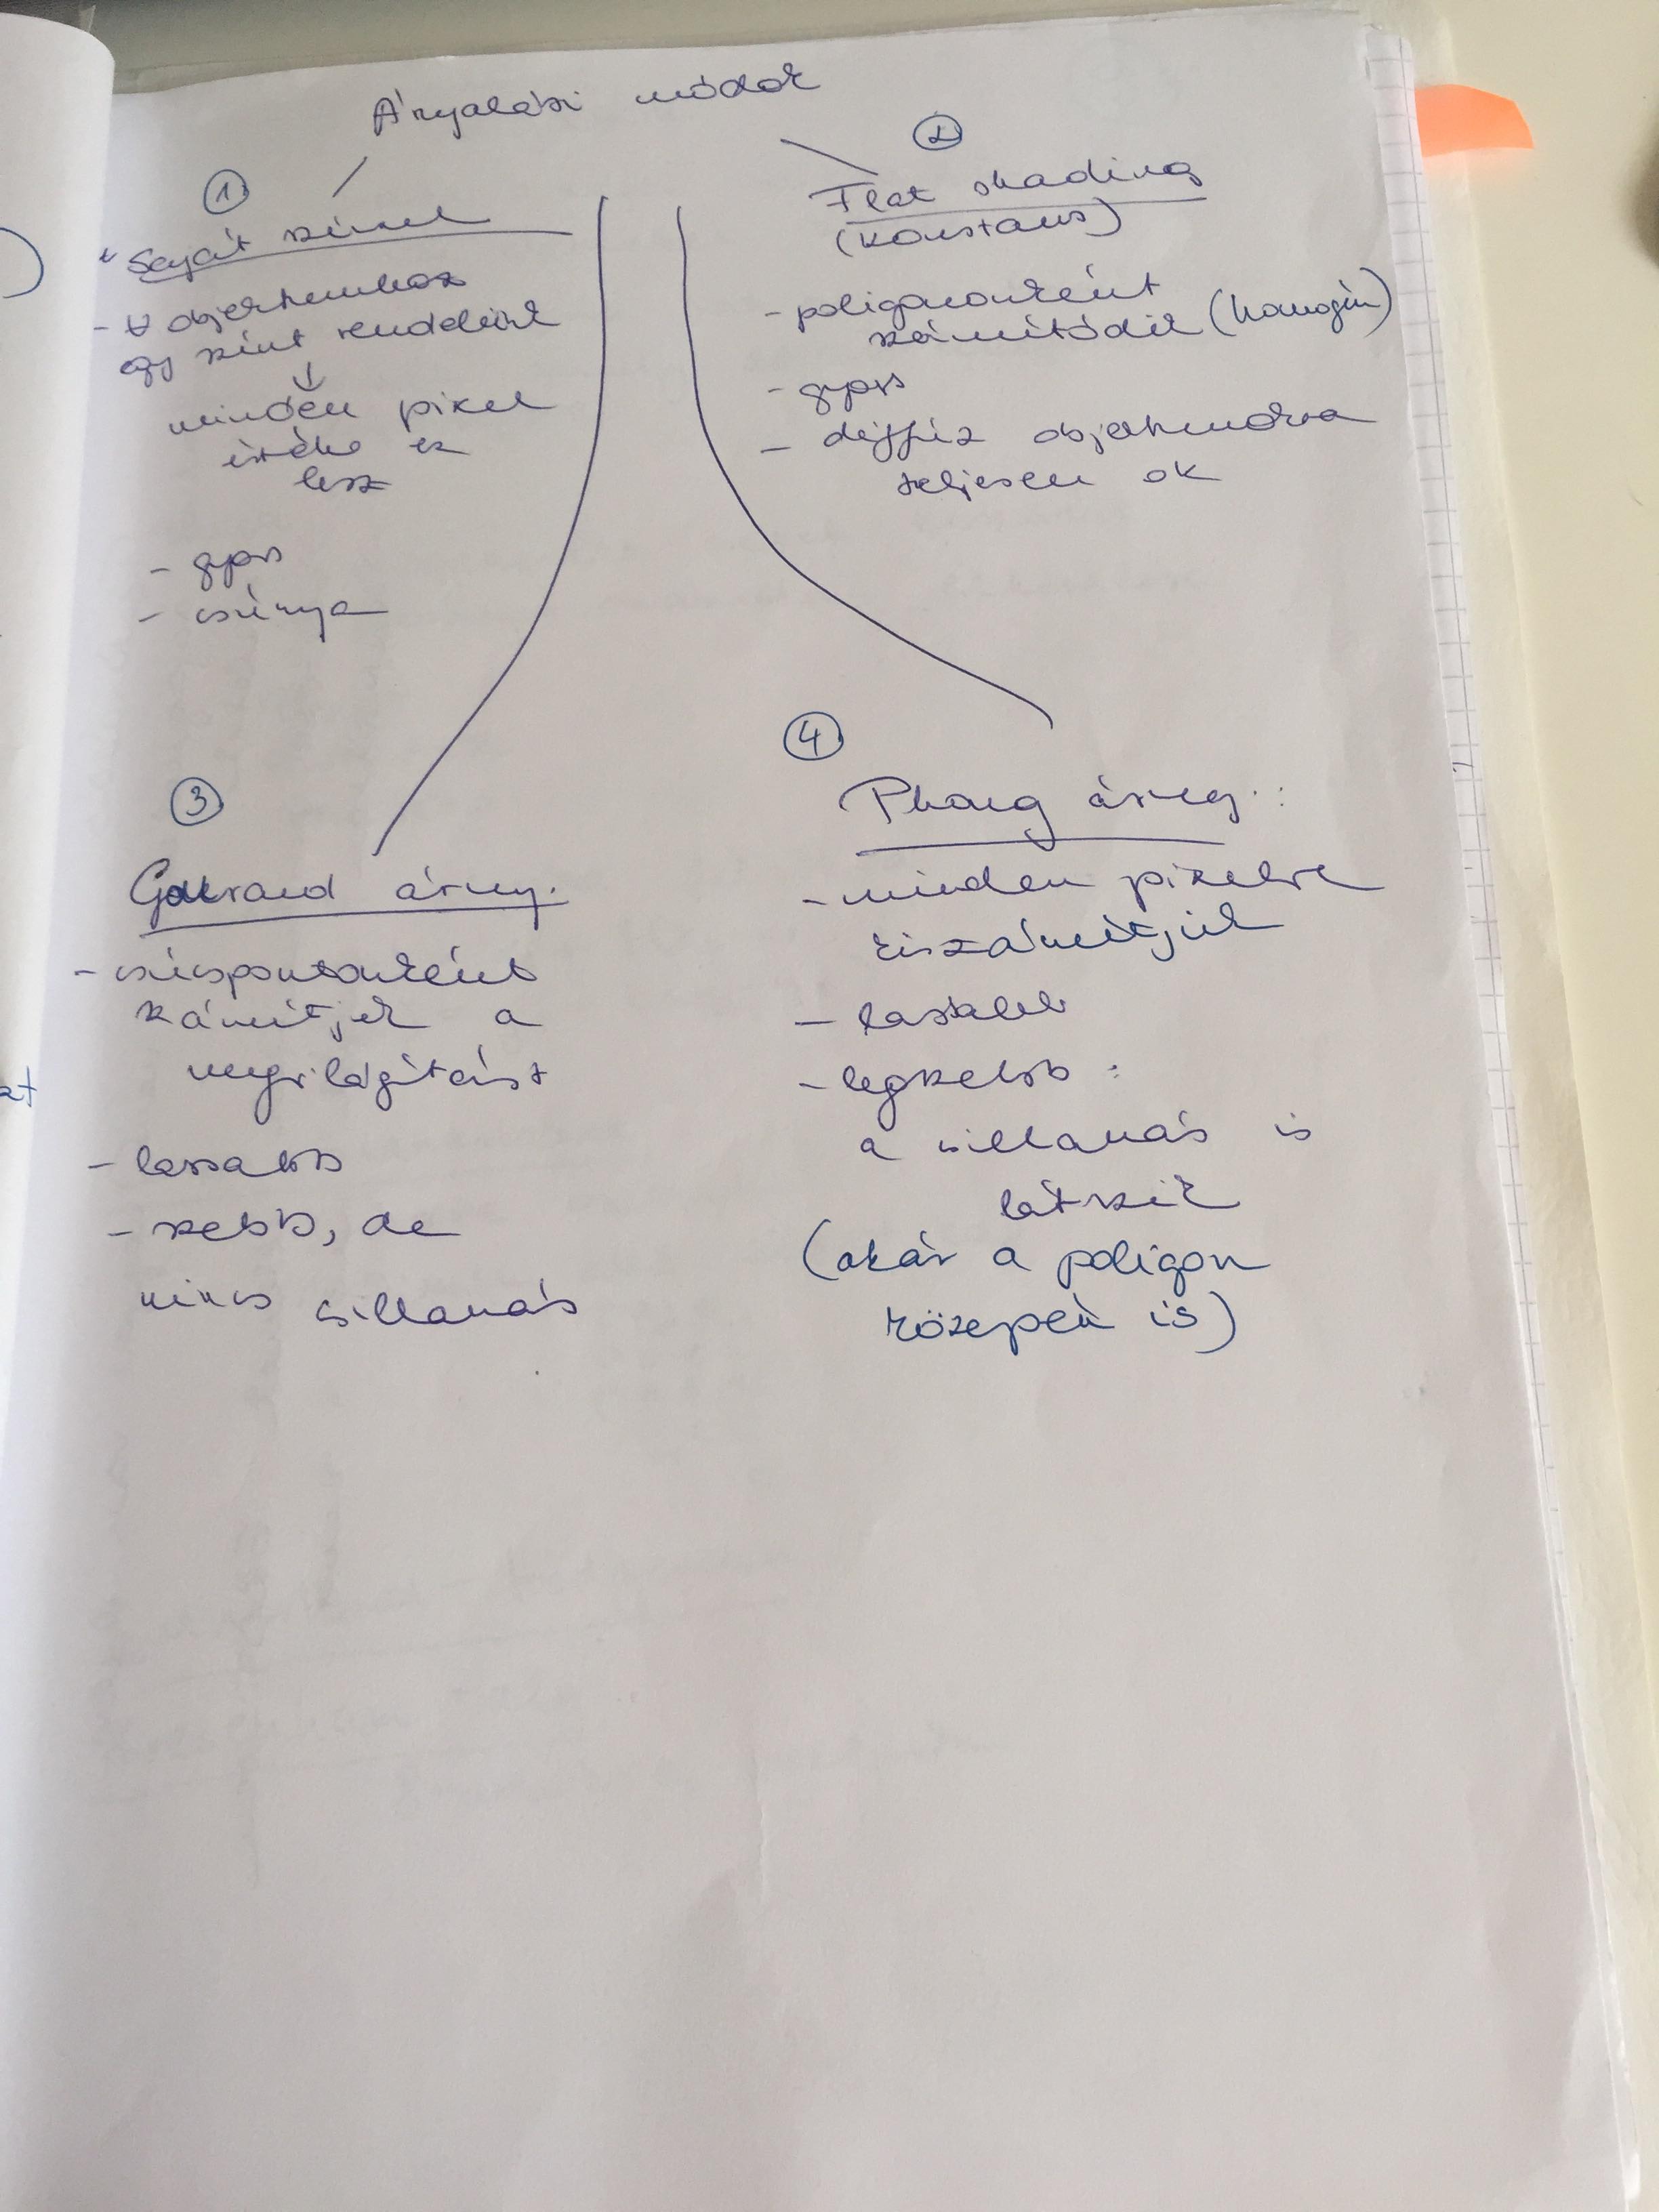 Árnyalási módok
①
"Saját színnel
- ∀ objektumhoz
egy színt rendelünk
↓
minden pixel
értéke ez
lesz
- gyors
- csúnya
②
Flat shading
(konstans)
- poligononként
számítódik (homogén)
- gyors
- diffúz objektumokra
teljesen ok
③
Gouraud árny.
- csúcspontonként
számítjuk a
megvilágítást
- lassabb
- szebb, de
nincs csillanás
④
Phong árny.:
- minden pixelre
kiszámítjuk
- lassabb
- legszebb:
a csillanás is
látszik
(akár a poligon
közepén is)